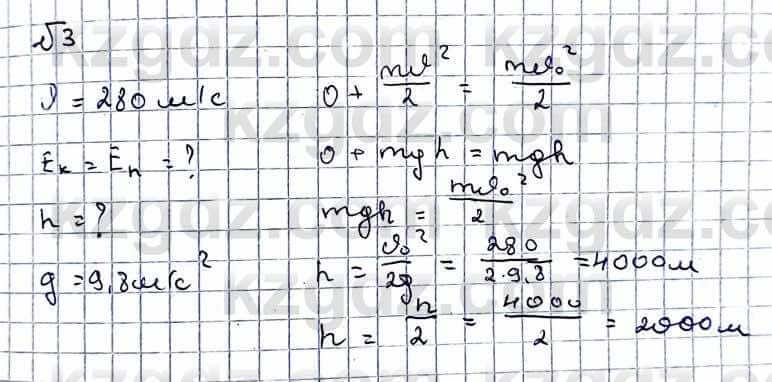 √3
𝒱 = 280 м/с
Eк = Eп = ?
h = ?
g = 9,8 м/с²
0 + mv²/2 = mv₀²/2
0 + mgh = mgh
mgh = mv₀²/2
h = v₀²/2g = 280/2·9,8 = 4000м
h = h/2 = 4000/2 = 2000м
kzgdz.com